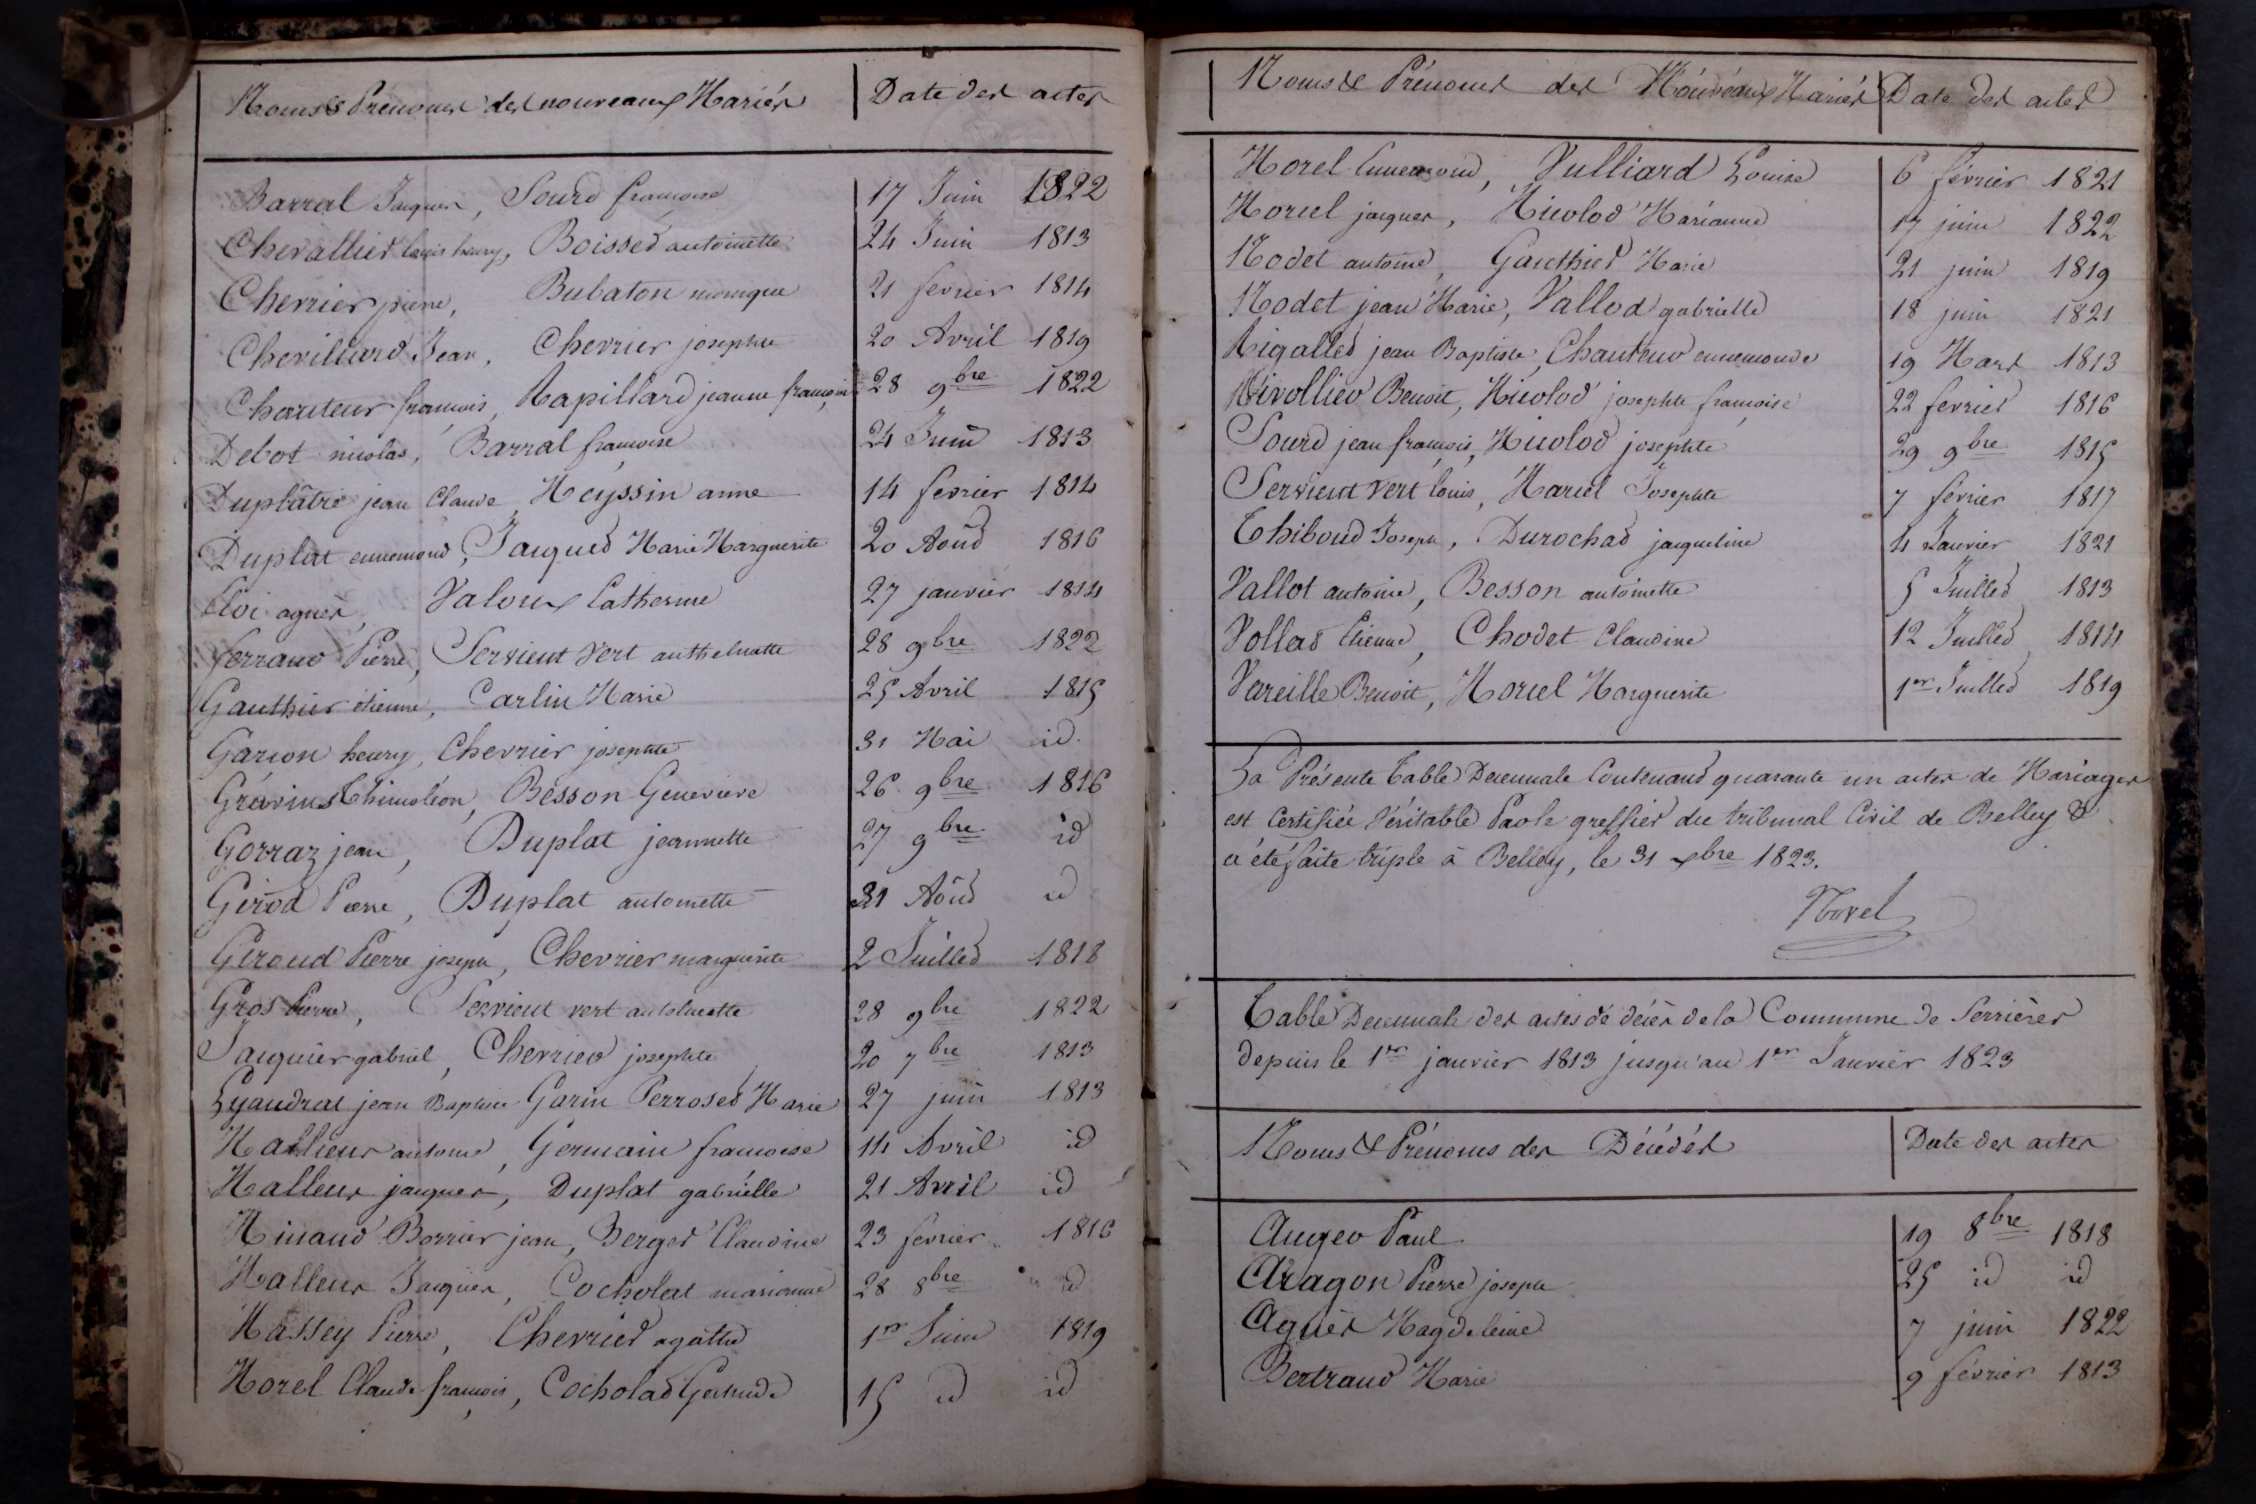 Noms & Prénoms des nouveaux Mariés Date des actes
Barral Jacques, Sourd françoise 17 Juin 1822
Chevallier louis henry, Boisset antoinette 24 Juin 1813
Cherrier pierre, Bubaton monique 21 fevrier 1814
Chevilliard Jean, Chevrier josephte 20 Avril 1819
Chanteur françois, Rapillard jeanne françoise 28 9bre 1822
Debot nicolas, Barral françoise 24 Juin 1813
Duplâtre jean Claude Meyssin anne 14 fevrier 1814
Duplat ennemond, Jacques Marie Marguerite 20 Aoûd 1816
Eloi agnès, Valoux Catherine 27 janvier 1814
ferrand Pierre, Servient vert anthelmette 28 9bre 1822
Gauthier étienne, Carlin Marie 25 Avril 1815
Garion henry, Chevrier josephte 31 Mai id.
Grávins Thimoléon, Besson Genevieve 26 9bre 1816
Gorraz jean, Duplat jeannette 27 9bre id
Girod Pierre, Duplat antoinette 31 Aoûd id
Giroud Pierre joseph, Chevrier marguerite 2 Juilled 1818
Gros Pierre, Servient vert anthelmette 28 9bre 1822
Jacquier gabriel, Chevrier josephte 20 7bre 1813
Lyaudrat jean Baptiste Garin Perroset Marie 27 juin 1813
Mallieur antoine, Germain françoise 14 Avril id
Malleur jacques, Duplat gabrielle 21 Avril id
Minaud Borrier jean, Berger Claudine 23 fevrier 1816
Malleur Jacques, Cocholat marianne 28 8bre id
Massey Pierre, Chevrier agathe 1er Juin 1819
Morel Claude françois, Cocholad Gertrude 15 id id
Noms & Prénoms des Nouveaux Mariés Date des actes
Morel Ennemond, Vulliard Louise 6 février 1821
Moriel jacques, Nicolod Marianne 17 juin 1822
Nodet antoine, Gauthier Marie 21 juin 1819
Nodet jean Marie, Vallod gabrielle 18 juin 1821
Rigalled jean Baptiste, Chanteur ennemonde 19 Mars 1813
Rivollier Benoit, Nicolod josephte françoise 22 fevrier 1816
Sourd jean françois, Nicolod josephte 29 9bre 1815
Servient vert louis, Mariel Josephte 7 fevrier 1817
Thiboud Joseph, Durochad jacqueline 4 Janvier 1821
Vallot antoine, Besson antoinette 5 Juilled 1813
Vollad Etienne, Chodet Claudine 12 Juilled 1814
Vareille Benoit, Moriel Marguerite 1er Juilled 1819
La Présente Table Decennale Contenand quarante un actes de Mariages
est Certifiée Véritable Par le greffier du tribunal Civil de Belley &
a été faite triple à Belley, le 31 xbre 1823.
Morel
Table Decennale des actes de décès de la Commune de Serrières
depuis le 1er janvier 1813 jusqu'au 1er Janvier 1823
Noms & Prénoms des Décédés Date des actes
Auger Paul 19 8bre 1818
Aragon Pierre joseph 25 id id
Agnès Magdeleine 7 juin 1822
Bertrand Marie 9 février 1813